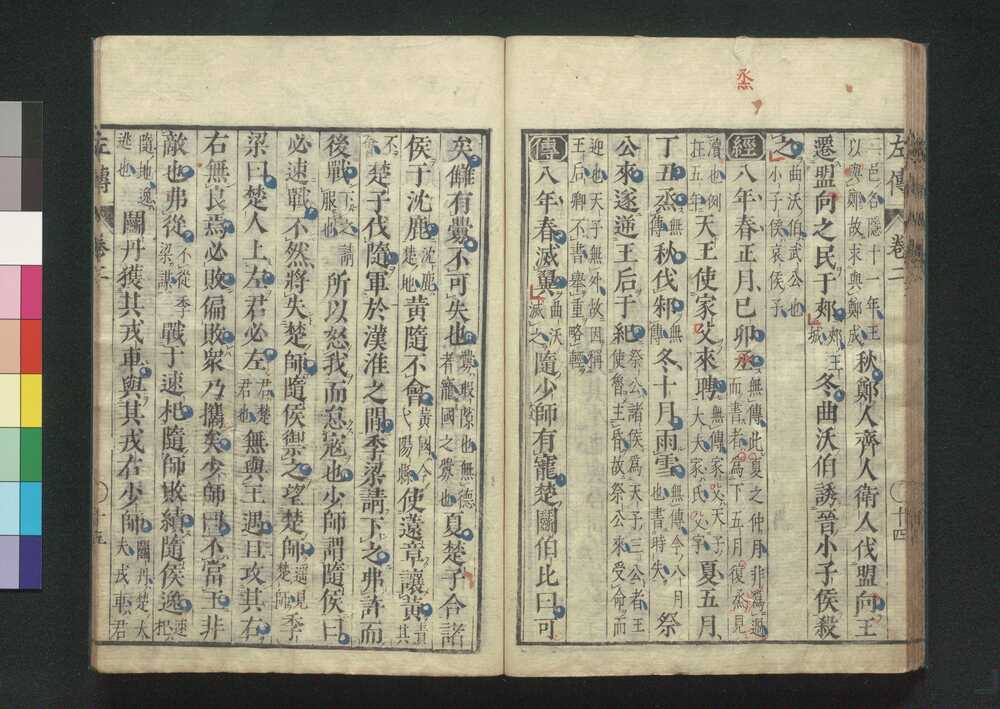 烝
左傳 卷二 十四
二邑名隱十一年王以與鄭故求與鄭成秋鄭人齊人衛人伐盟向王
遷盟向之民于郟郟王城冬曲沃伯誘晉小子侯殺
之曲沃伯武公也小子侯哀侯子
經八年春正月己卯烝無傳此夏之仲月非爲過而書者爲下五月復烝見
瀆也例在五年天王使家父來聘無傳家父天子大夫家氏父字夏五月
丁丑烝無傳秋伐邾無傳冬十月雨雪無傳今八月也書時失祭
公來遂逆王后于紀祭公諸侯爲天子三公者王使魯主昏故祭公來受命而
迎也天子無外故因稱王后卿不書舉重略輕
傳八年春滅翼曲沃滅之隨少師有寵楚鬬伯比曰可
矣讎有釁不可失也釁瑕隙也無德者寵國之釁也夏楚子合諸
侯于沈鹿沈鹿楚地黃隨不會黃國今弋陽縣使薳章讓黃責其
不會楚子伐隨軍於漢淮之間季梁請下之弗許而
後戰下之請服也所以怒我而怠寇也少師謂隨侯曰
必速戰不然將失楚師隨侯禦之望楚師遥見楚師季
梁曰楚人上左君必左君楚君也無與王遇且攻其右
右無良焉必敗偏敗衆乃攜矣少師曰不當王非
敵也弗從不從季梁謀戰于速杞隨師敗績隨侯逸速杞
隨地逸逃也鬬丹獲其戎車與其戎右少師鬬丹楚大夫戎車君
左傳 卷二 十五